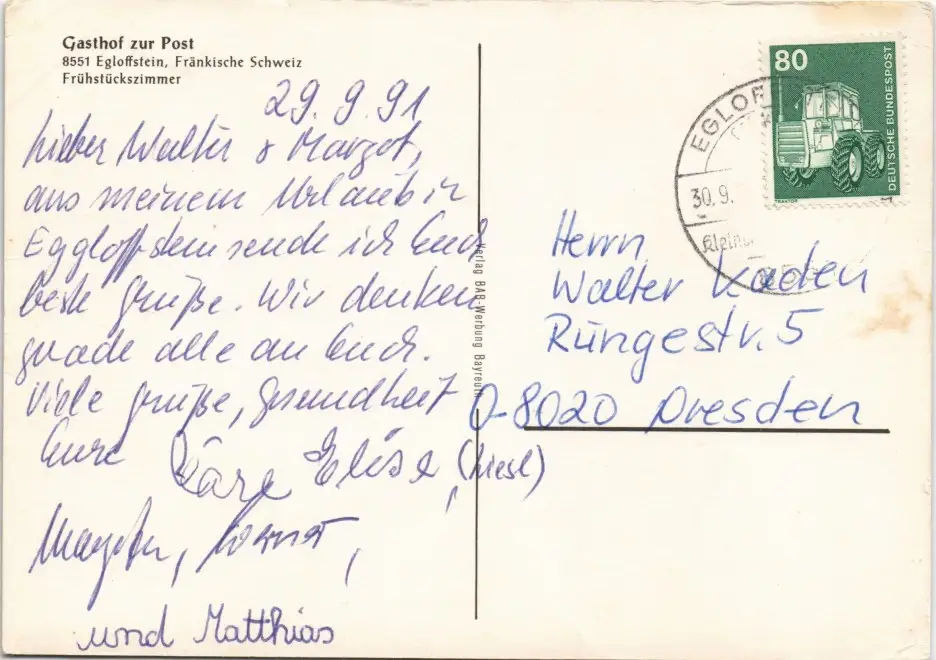 Gasthof zur Post
8551 Egloffstein, Fränkische Schweiz
Frühstückszimmer
29.9.91
Lieber Walter & Margot,
aus meinem Urlaub in
Eggloffstein sende ich Euch
beste Grüße. Wir denken
gerade alle an Euch.
Viele Grüße, Gesundheit
Eure
Elise (Liesl)
und Matthias
Verlag BAB-Werbung Bayreuth
80
DEUTSCHE BUNDESPOST
TRAKTOR
EGLOF
30.9.
Herrn
Walter Kaden
Rungestr. 5
O-8020 Dresden